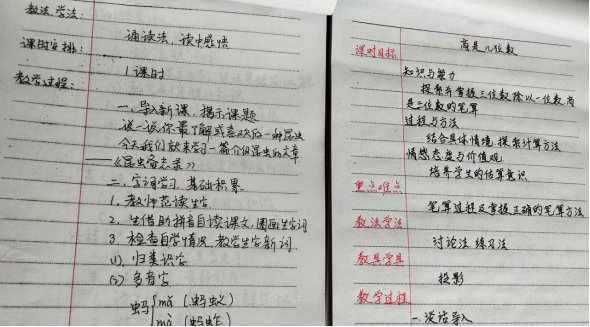 教法学法:
诵读法,读中感悟
课时安排:
1课时
教学过程:
一、导入新课,揭示课题
说一说你最了解或喜欢的一种昆虫
今天我们就来学习一篇介绍昆虫的文章
——《昆虫备忘录》
二、字词学习,基础积累
1.教师范读生字
2.生借助拼音自读课文,圈画生字词
3.检查自学情况,教学生字新词
(1).归类识字
(2)多音字
蚂 mǎ (蚂蚁)
mà (蚂蚱)
商是几位数
课时目标
知识与能力
探索并掌握三位数除以一位数商
是二位数的笔算
过程与方法
结合具体情境,探索计算方法
情感态度与价值观
培养学生的估算意识
重点难点
笔算过程及掌握正确的笔算方法
教法学法
讨论法 练习法
教具学具
投影
教学过程
一、谈话导入